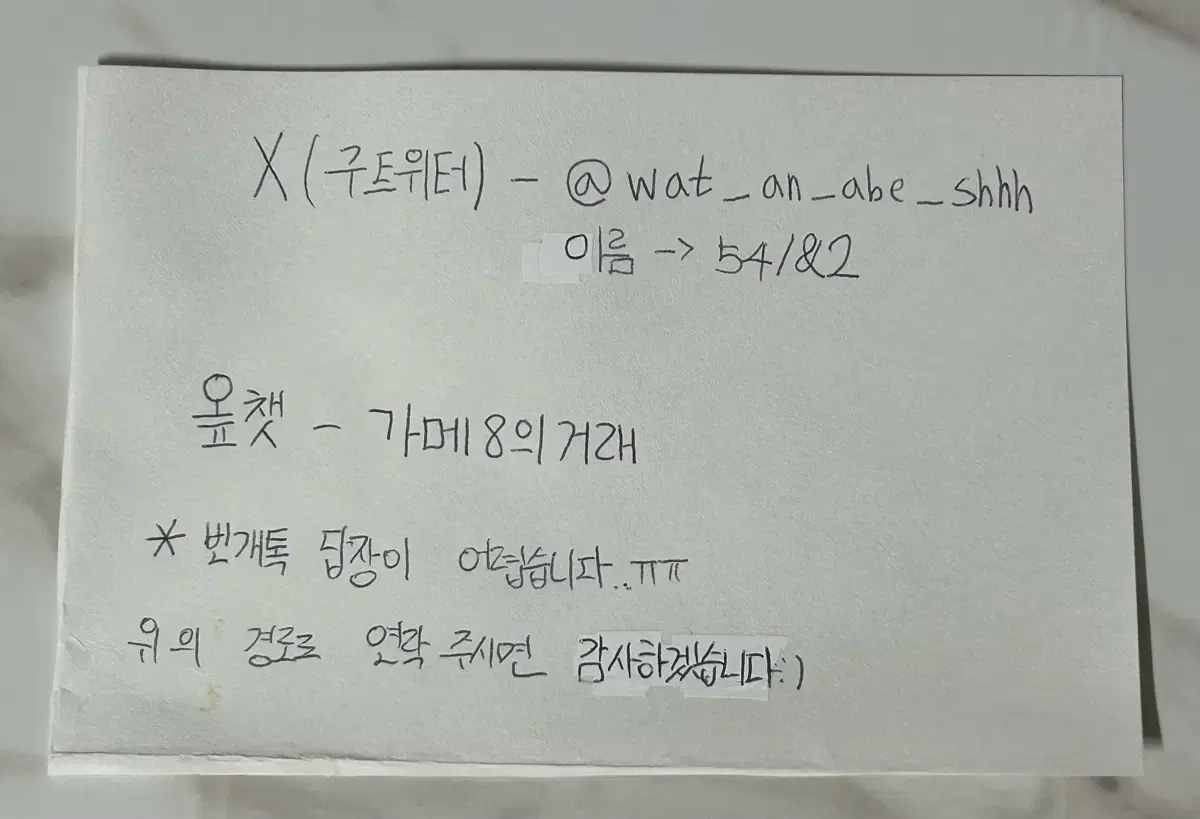 X (구트위터) - @wat_an_abe_shhh
이름 -> 54/&2
옾챗 - 가메8의거래
* 번개톡 답장이 어렵습니다..ㅠㅠ
위의 경로로 연락 주시면 감사하겠습니다:)